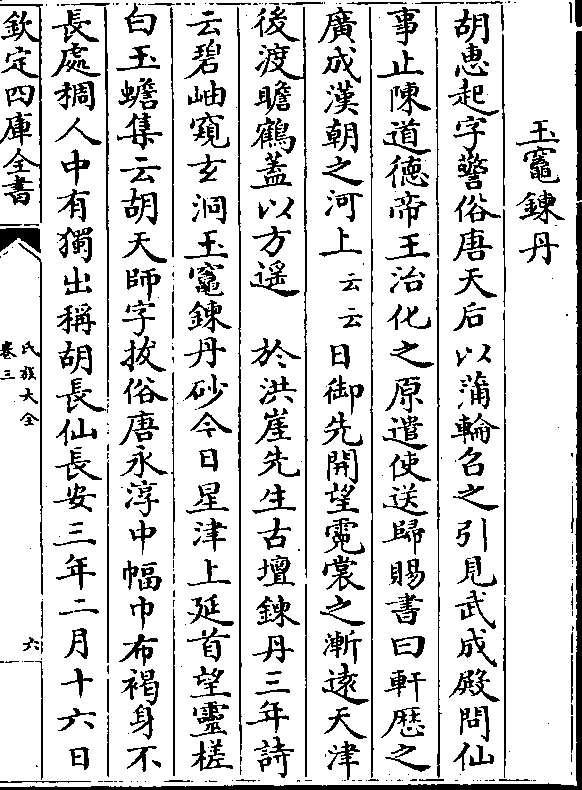 玉竈鍊丹
胡惠起字警俗唐天后以蒲輪召之引見武成殿問仙
事止陳道德帝王治化之原遣使送歸賜書曰軒歷之
廣成漢朝之河上云云日御先開望霓裳之漸遠天津
後渡瞻鶴蓋以方遥　於洪崖先生古壇鍊丹三年詩
云碧岫窺玄洞玉竈鍊丹砂今日星津上延首望靈槎
白玉蟾集云胡天師字拔俗唐永淳中幅巾布褐身不
長處稠人中有獨出稱胡長仙長安三年二月十六日
欽定四庫全書
氏族大全
卷三
六